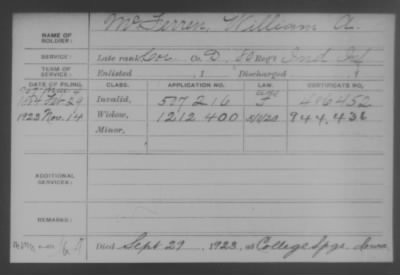 NAME OF SOLDIER: McFerren, William A.
SERVICE: Late rank Cor Co. D, 80 Reg't Ind Inf
TERM OF SERVICE: Enlisted , 1 Discharged , 1
DATE OF FILING. CLASS. APPLICATION NO. LAW. CERTIFICATE NO.
1884 Feb 29 Invalid, 507216 J 486452
1923 Nov. 14 Widow, 1212400 944,436
Minor,
ADDITIONAL SERVICES:
REMARKS:
Died Sept. 29 1923, at College Spgs. Iowa